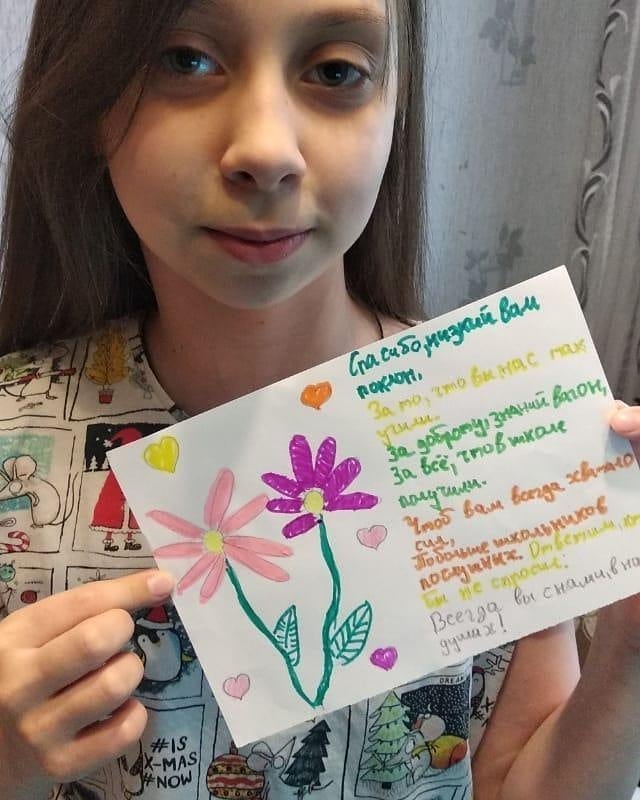 Спасибо, низкий вам
поклон,
За то, что вы нас так
учили.
За доброту, знаний вагон,
За всё, что в школе
получили.
Чтоб вам всегда хватало
сил,
Побольше школьников
послушных. Ответим,
бы не спросил:
Всегда вы с нами, в
душах!
#IS
X-MAS
#NOW